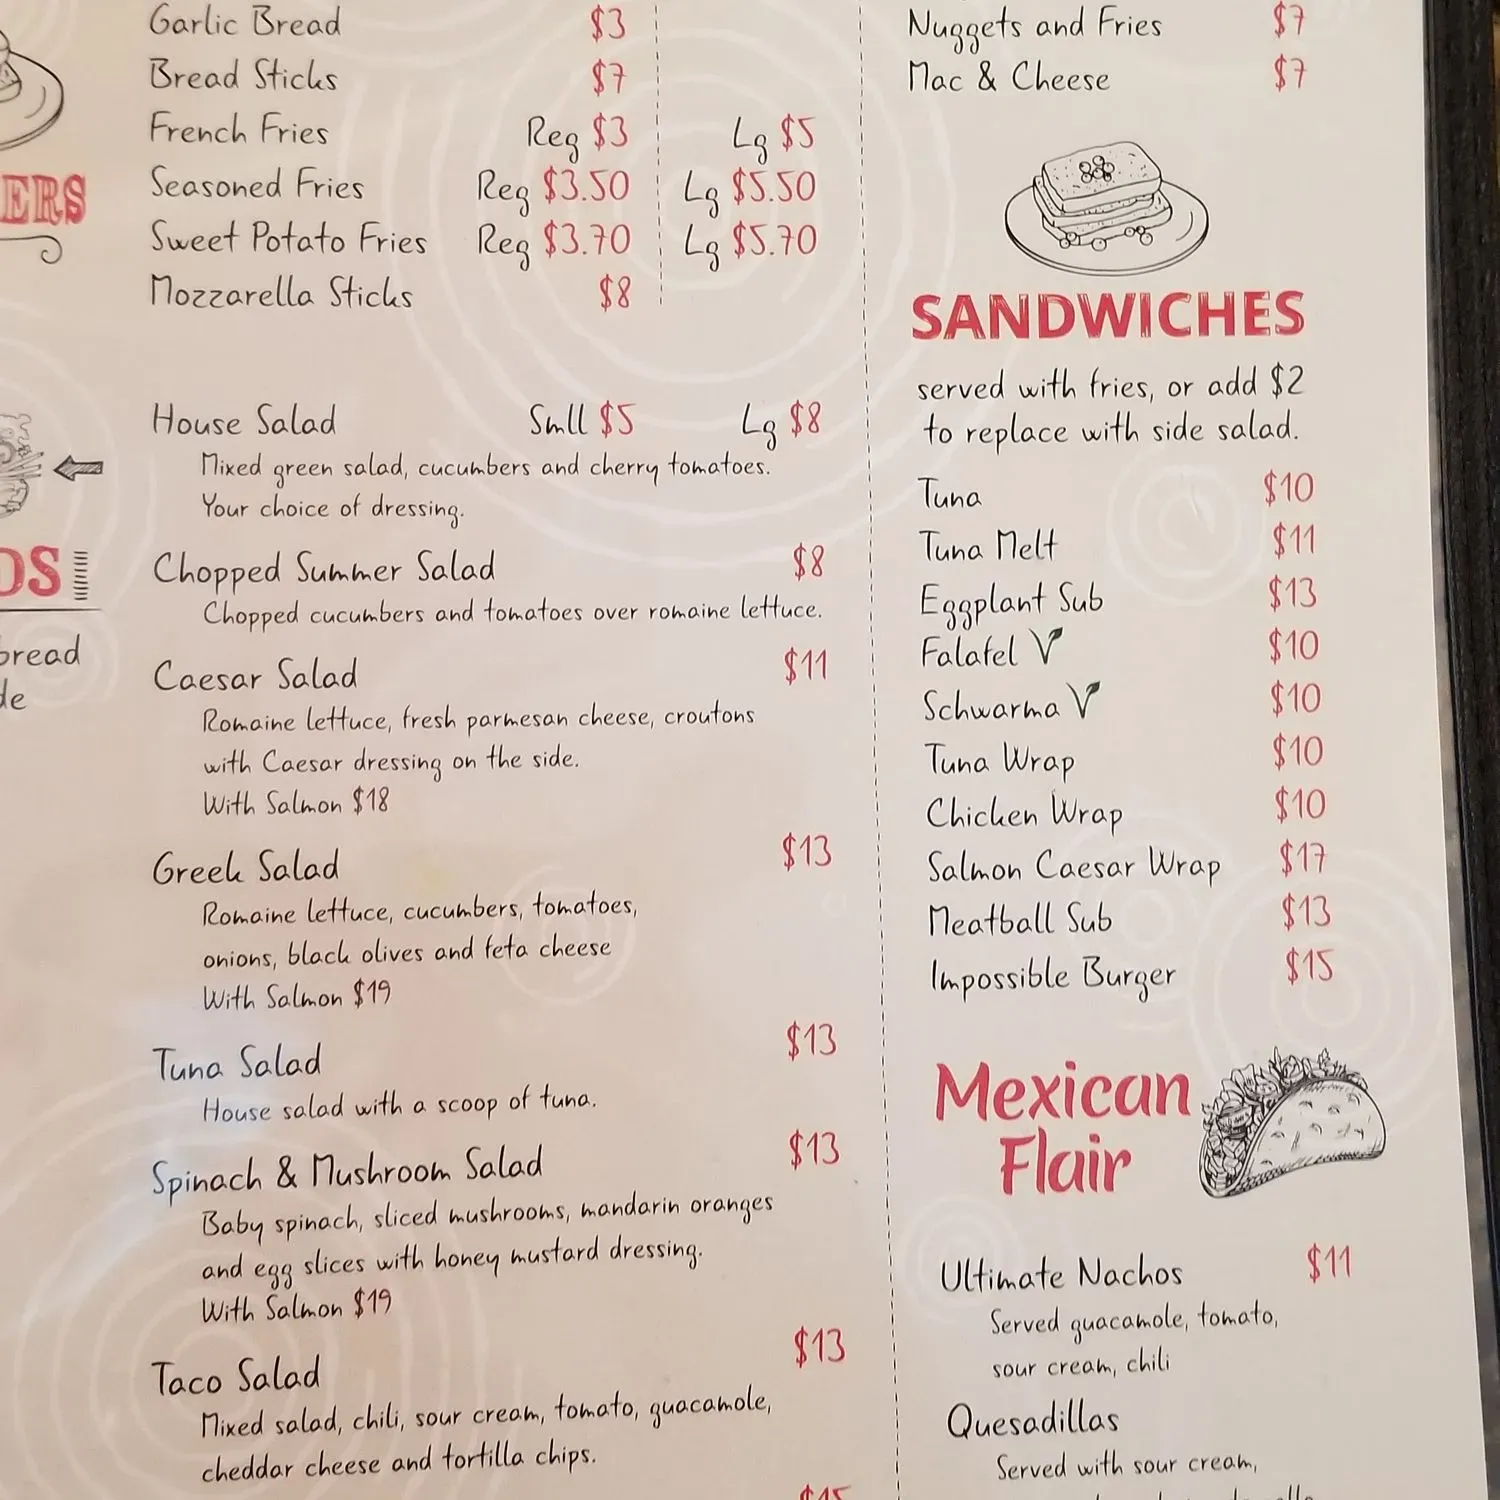 ERS
DS
bread
de
Garlic Bread $3
Bread Sticks $7
French Fries Reg $3 Lg $5
Seasoned Fries Reg $3.50 Lg $5.50
Sweet Potato Fries Reg $3.70 Lg $5.70
Mozzarella Sticks $8
House Salad Smll $5 Lg $8
Mixed green salad, cucumbers and cherry tomatoes.
Your choice of dressing.
Chopped Summer Salad $8
Chopped cucumbers and tomatoes over romaine lettuce.
Caesar Salad $11
Romaine lettuce, fresh parmesan cheese, croutons
with Caesar dressing on the side.
With Salmon $18
Greek Salad $13
Romaine lettuce, cucumbers, tomatoes,
onions, black olives and feta cheese
With Salmon $19
Tuna Salad $13
House salad with a scoop of tuna.
Spinach & Mushroom Salad $13
Baby spinach, sliced mushrooms, mandarin oranges
and egg slices with honey mustard dressing.
With Salmon $19
Taco Salad $13
Mixed salad, chili, sour cream, tomato, guacamole,
cheddar cheese and tortilla chips.
$15
Nuggets and Fries $7
Mac & Cheese $7
SANDWICHES
served with fries, or add $2
to replace with side salad.
Tuna $10
Tuna Melt $11
Eggplant Sub $13
Falafel V $10
Schwarma V $10
Tuna Wrap $10
Chicken Wrap $10
Salmon Caesar Wrap $17
Meatball Sub $13
Impossible Burger $15
Mexican
Flair
Ultimate Nachos $11
Served guacamole, tomato,
sour cream, chili
Quesadillas
Served with sour cream,